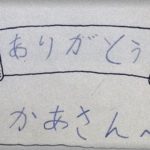 ありがとう
かあさん〜